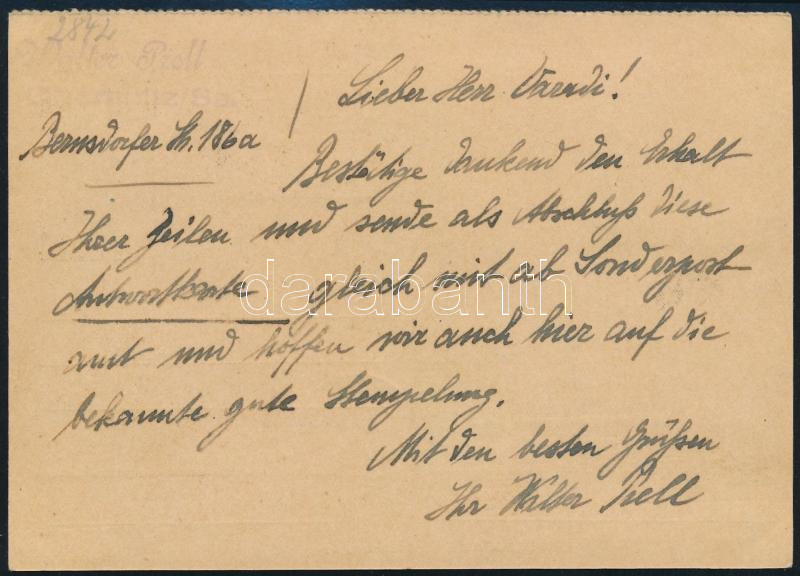 2842
Walter Piell
Bernsdorfer Str. 186a
Lieber Herr Varadi!
Bestätige dankend den Erhalt
Ihrer Zeilen und sende als Abschluß diese
Antwortkarte gleich mit ab Sonderpost
amt und hoffen wir auch hier auf die
bekannte gute Stempelung.
Mit den besten Grüßen
Ihr Walter Piell
darabanth